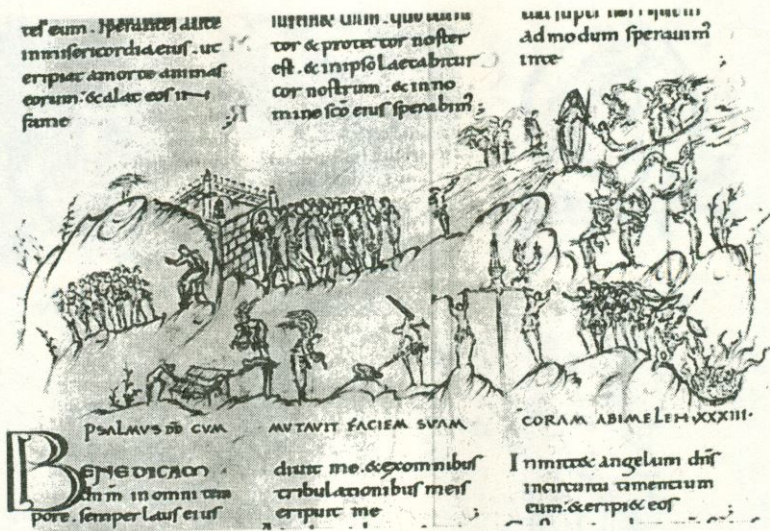 tes eum. Sperantes autē
inmisericordia eius. ut
eripiat amorte animas
eorum: & alat eos in
fame
tor & protector noster
est. & inipso laetabitur
cor nostrum. & in no
mine scō eius sperabim̄;
admodum speravim̄
inte
PSALMVS DD CVM MVTAVIT FACIEM SVAM CORAM ABIMELEH·XXXIII·
BENEDICAM
dnm in omni tem
pore. semper laus eius
divit me. & exomnibus
tribulationibus meis
eripuit me
Inmittet angelum dns
incircuitu timentium
eum: & eripi& eos